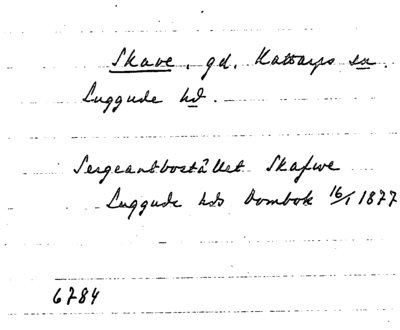 Skave, gd. Kattarps sn.
Luggude hd.
Sergeantbostället Skafwe
Luggude hds Dombok 16/1 1877
6784